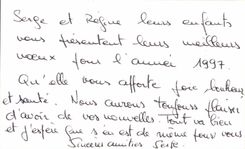 Serge et Régine leurs enfants
vous présentent leurs meilleurs
vœux pour l'année 1997.
Qu'elle vous apporte joie bonheur
et santé. Nous aurons toujours plaisir
d'avoir de vos nouvelles Tout va bien
et j'espère que s'en est de même pour vous
Sincères amitiés Serge.